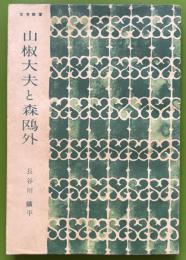 山椒大夫と森鴎外
長谷川 鑛平